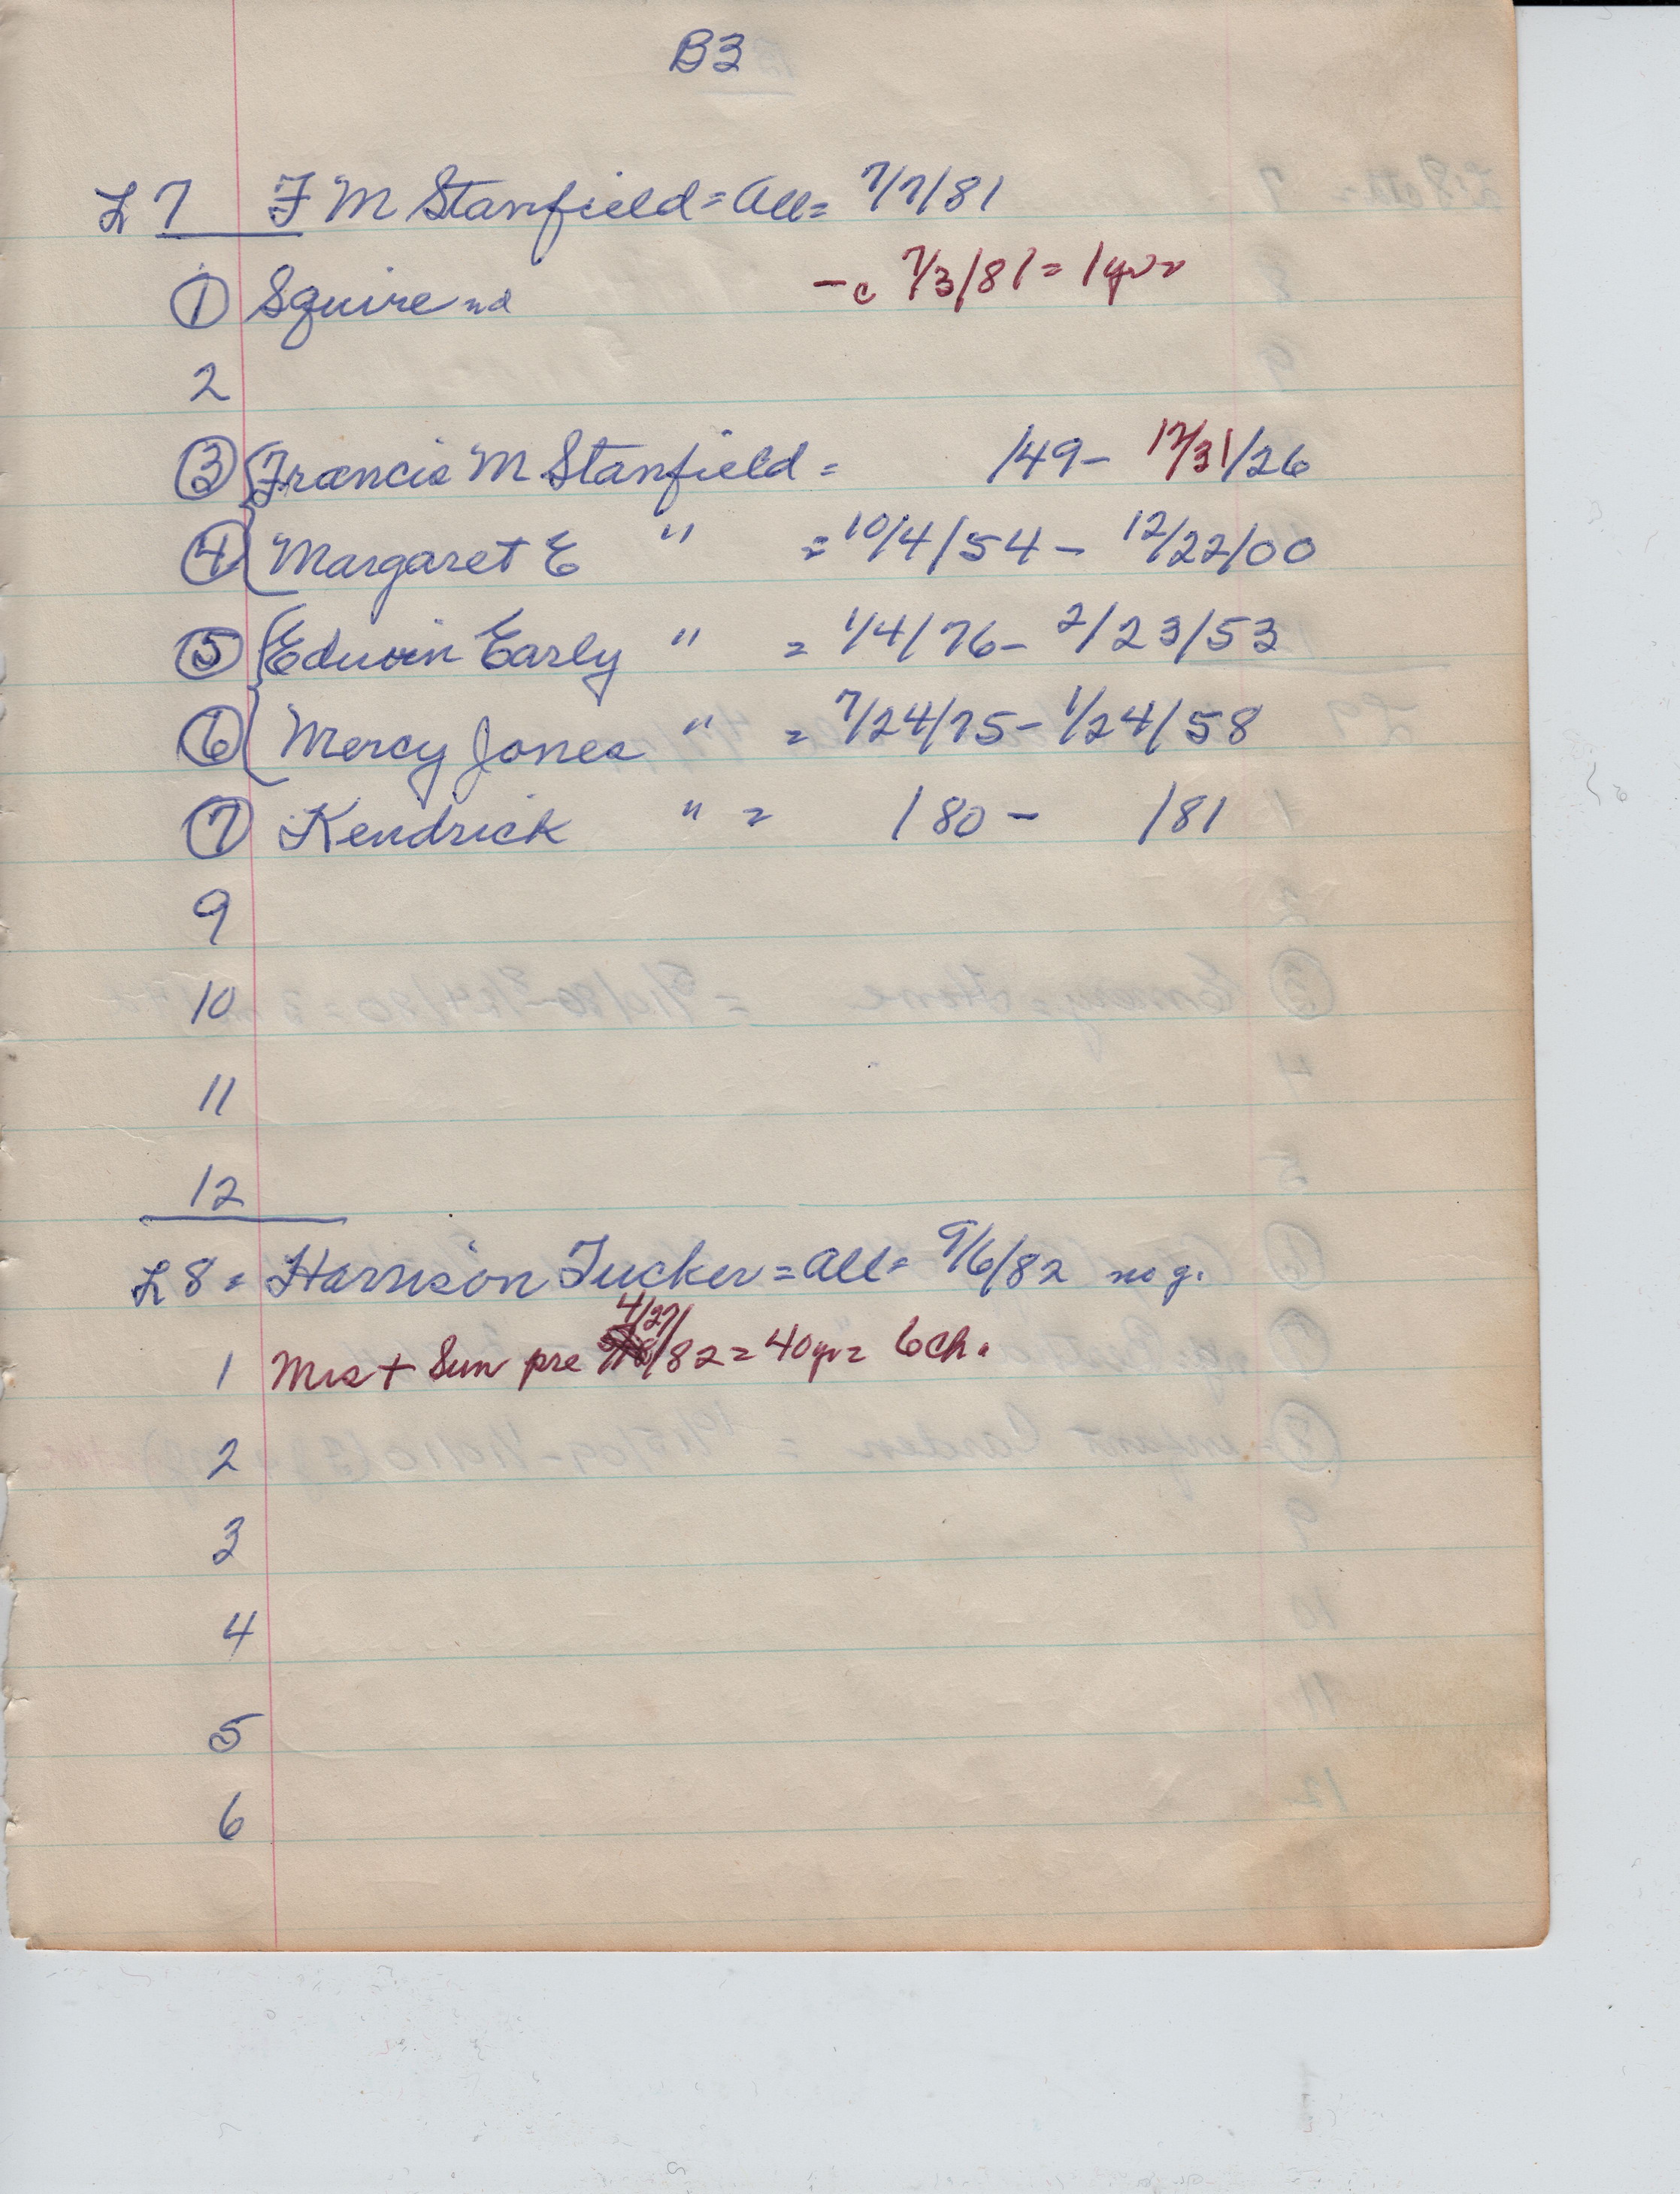 B3
L 7 F M Stanfield = All = 7/7/81
① Squire = nd - c 7/3/81 = 1 yr =
2
③ Francis M Stanfield = /49 - 12/31/26
④ Margaret E " = 10/4/54 - 12/22/00
⑤ Edwin Early " = 1/4/76 - 2/23/53
⑥ Mercy Jones " = 7/24/75 - 1/24/58
⑦ Kendrick " = /80 - /81
9
10
11
12
L 8 = Harrison Tucker = All = 9/6/82 no g.
1 Mrs + Sun pre 4/27/82 = 40 yr = 6 ch.
2
3
4
5
6